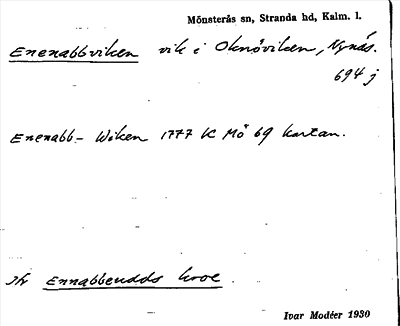 Mönsterås sn, Stranda hd, Kalm. l.
Enenabbviken vik i Oknöviken, Nynäs.
694 j
Enenabb- Wiken 1777 K Mö 69 kartan.
Ennabbeudds
Ivar Modéer 1930